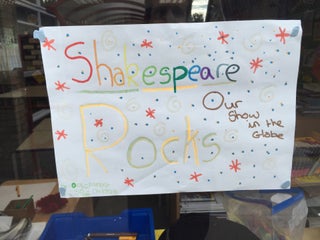 Shakespeare
Rocks
Our
Show
in the
Globe